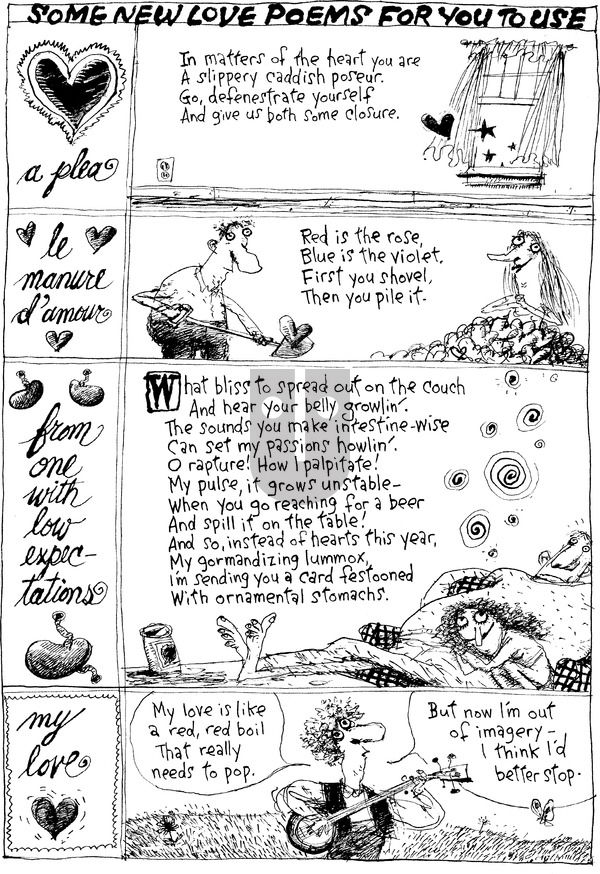 SOME NEW LOVE POEMS FOR YOU TO USE
a plea
In matters of the heart you are
A slippery caddish poseur.
Go, defenestrate yourself
And give us both some closure.
le
manure
d'amour
Red is the rose,
Blue is the violet.
First you shovel,
Then you pile it.
from
one
with
low
expec-
tations
What bliss to spread out on the couch
And hear your belly growlin'.
The sounds you make intestine-wise
Can set my passions howlin'.
O rapture! How I palpitate!
My pulse, it grows unstable–
When you go reaching for a beer
And spill it on the table!
And so, instead of hearts this year,
My gormandizing lummox,
I'm sending you a card festooned
With ornamental stomachs.
my
love
My love is like
a red, red boil
That really
needs to pop.
But now I'm out
of imagery–
I think I'd
better stop.